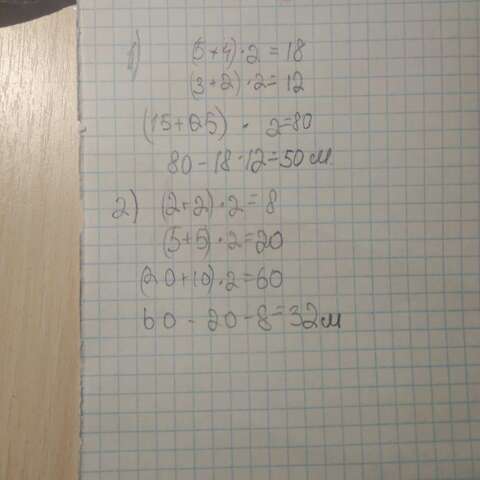 1) (5+4)·2=18
(3+2)·2=12
(15+25)·2=80
80-18-12=50м
2) (2+2)·2=8
(5+5)·2=20
(20+10)·2=60
60-20-8=32м